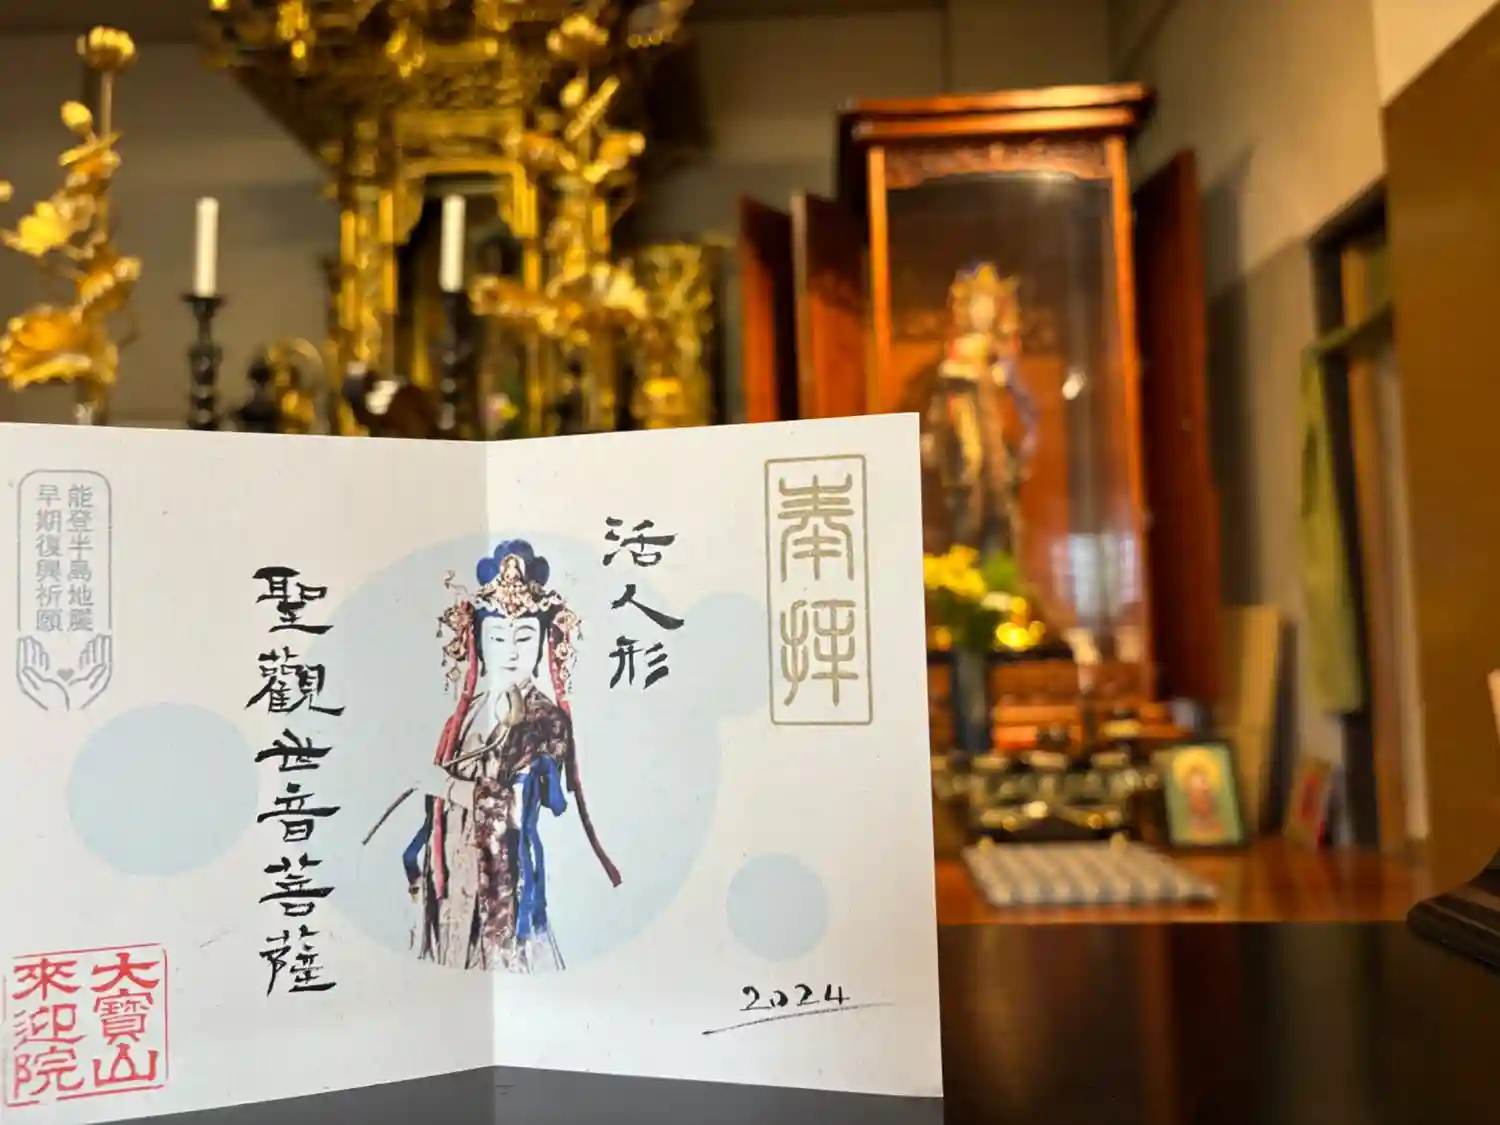 奉拝
活人形
聖觀世音菩薩
2024
能登半島地震
早期復興祈願
大寶山
來迎院